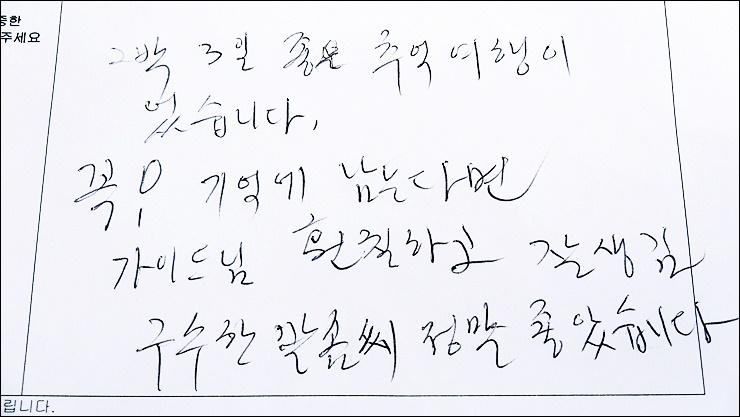 중한
주세요
2박 3일 좋은 추억여행이
었습니다.
꼭! 기억에 남는다면
가이드님 훤칠하고 잘생김
구수한 말솜씨 정말 좋았습니다
립니다.